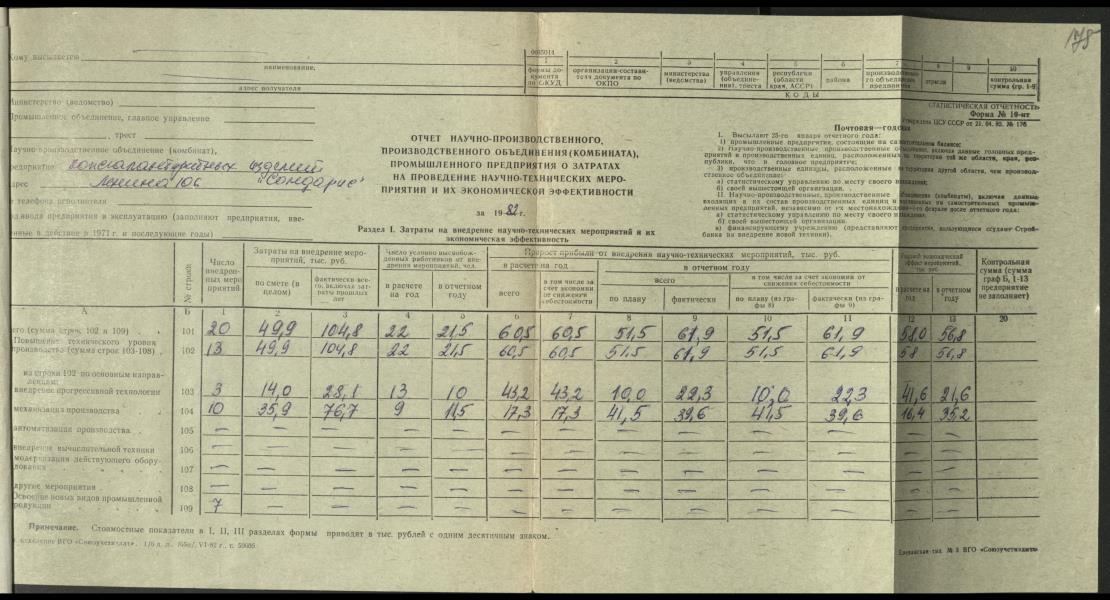 178
Кому высылается
наименование,
адрес получателя
0605014
формы документа по ОКУД
2
организации-составителя документа по ОКПО
3
министерства (ведомства)
4
управления (объединения), треста
5
республики (области края, АССР)
6
района
7
8
отрасли
9
10
контрольная сумма (гр. 1-9)
КОДЫ
Министерство (ведомство)
Промышленное объединение, главное управление
, трест
Научно-производственное объединение (комбинат),
предприятие
Адрес
№ телефона исполнителя
Год ввода предприятия в эксплуатацию (заполняют предприятия, вве-
денные в действие в 1971 г. и последующие годы)
ОТЧЕТ НАУЧНО-ПРОИЗВОДСТВЕННОГО,
ПРОИЗВОДСТВЕННОГО ОБЪЕДИНЕНИЯ (КОМБИНАТА),
ПРОМЫШЛЕННОГО ПРЕДПРИЯТИЯ О ЗАТРАТАХ
НА ПРОВЕДЕНИЕ НАУЧНО-ТЕХНИЧЕСКИХ МЕРО-
ПРИЯТИЙ И ИХ ЭКОНОМИЧЕСКОЙ ЭФФЕКТИВНОСТИ
за 1982 г.
Раздел I. Затраты на внедрение научно-технических мероприятий и их
экономическая эффективность
СТАТИСТИЧЕСКАЯ ОТЧЕТНОСТЬ
Форма № 10-нт
Утверждена ЦСУ СССР от 21. 04. 82. № 176
Почтовая—годовая
1. Высылают 25-го января отчетного года:
1) промышленные предприятия, состоящие на самостоятельном балансе;
2) Научно-производственные, производственные объединения, включая данные головных пред-
приятий и производственных единиц, расположенных на территории той же области, края, рес-
публики, что и головное предприятие;
3) производственные единицы, расположенные на территории другой области, чем производст-
венное объединение:
а) статистическому управлению по месту своего нахождения;
б) своей вышестоящей организации.
а) статистическому управлению по месту своего нахождения;
б) своей вышестоящей организации;
в) финансирующему учреждению (представляют предприятия, пользующиеся ссудами Строй-
банка на внедрение новой техники).
№ строки
Число внедренных мероприятий
Затраты на внедрение мероприятий, тыс. руб.
по смете (в целом)
фактически всего, включая затраты прошлых лет
Число условно высвобожденных работников от внедрения мероприятий, чел.
в расчете на год
в отчетном году
Прирост прибыли от внедрения научно-технических мероприятий, тыс. руб.
в расчете на год
всего
в том числе за счет экономии от снижения себестоимости
в отчетном году
всего
по плану
фактически
в том числе за счет экономии от снижения себестоимости
по плану (из графы 8)
фактически (из графы 9)
Годовой экономический эффект мероприятий, тыс. руб.
в расчете на год
в отчетном году
Контрольная сумма (сумма граф Б, 1-13 предприятие не заполняет)
А Б 1 2 3 4 5 6 7 8 9 10 11 12 13 20
Всего (сумма строк 102 и 109) 101 20 49,9 104,8 22 21,5 60,5 60,5 51,5 61,9 51,5 61,9 58,0 56,8
Повышение технического уровня
производства (сумма строк 103-108) 102 13 49,9 104,8 22 21,5 60,5 60,5 51,5 61,9 51,5 61,9 58 56,8
из строки 102 по основным направ-
лениям:
внедрение прогрессивной технологии 103 3 14,0 28,1 13 10 43,2 43,2 10,0 22,3 10,0 22,3 41,6 21,6
механизация производства 104 10 35,9 76,7 9 11,5 17,3 17,3 41,5 39,6 41,5 39,6 16,4 35,2
автоматизация производства 105 — — — — — — — — — — — — —
внедрение вычислительной техники 106 — — — — — — — — — — — — —
модернизация действующего обору-
дования 107 — — — — — — — — — — — — —
другие мероприятия 108 — — — — — — — — — — — — —
Освоение новых видов промышленной
продукции 109 7 — — — — — — — — — — — —
Примечание. Стоимостные показатели в I, II, III разделах формы приводят в тыс. рублей с одним десятичным знаком.
отделение ВГО «Союзучетиздат».
№ 3 ВГО «Союзучетиздат»